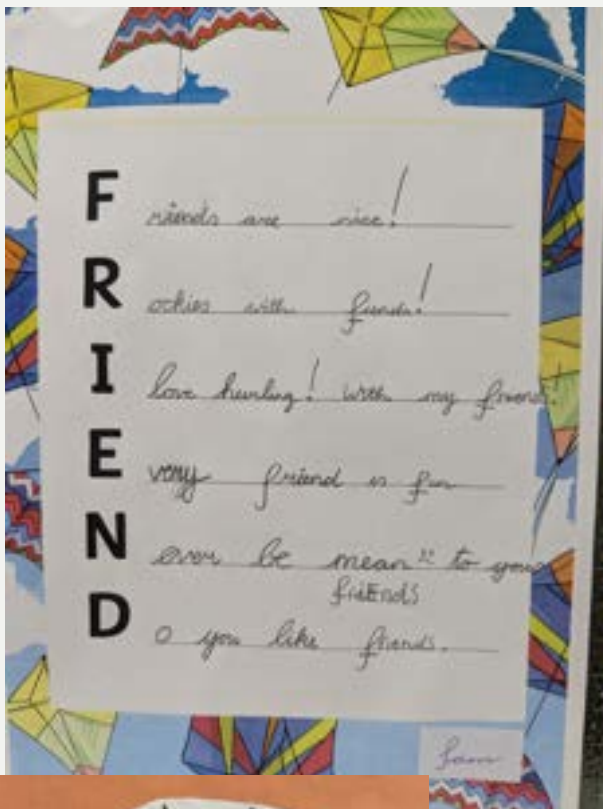 Friends are nice!
Rookies with friends!
I love hurling! with my friends!
Every friend is fun
Never be mean to your
friends
Do you like friends.
Sam